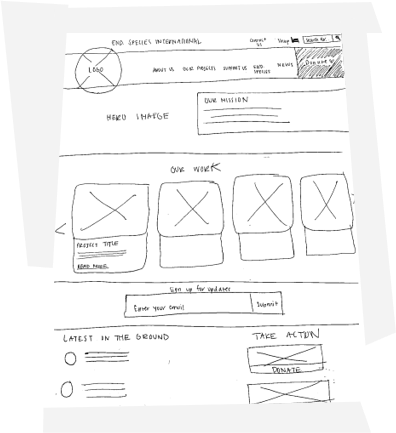 END. SPECIES INTERNATIONAL
CONTACT US
Shop
SEARCH
LOGO
ABOUT US
OUR PROJECTS
SUPPORT US
END. SPECIES
NEWS
DONATE
HERO IMAGE
OUR MISSION
OUR WORK
PROJECT TITLE
READ MORE
Sign up for updates
Enter your email
Submit
LATEST ON THE GROUND
TAKE ACTION
DONATE